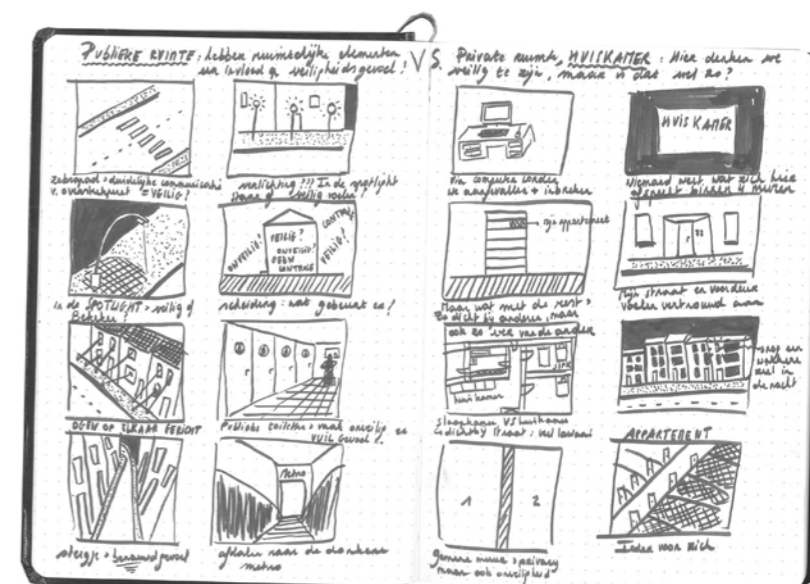 PUBLIEKE RUIMTE: hebben ruimtelijke elementen
een invloed op veiligheidsgevoel!
VS.
Private ruimte, HUISKAMER: Hier denken we
veilig te zijn, maar is dat wel zo?
Zebrapad > duidelijke communicatie
v. oversteekpunt = VEILIG?
verlichting??? In de spotlight
staan of veilig voelen?
In de SPOTLIGHT > veilig of
Bekeken?
ONVEILIG!
VEILIG?
ONVEILIG!
GEEN
CONTROLE
CONTROLE
VEILIG?
scheiding: wat gebeurt er?
OGEN OP ELKAAR GERICHT
Publieke toiletten > vaak onveilig en
VUIL Gevoel!
steegje > benauwd gevoel
Metro
afdalen naar de donkere
metro
via computer zonder
aangevallen + inbreken
HUISKAMER
Niemand weet wat zich hier
afspeelt binnen 4 muren
mijn appartement
Maar wat met de rest >
Zo dicht bij anderen, maar
ook zo ver van de ander
Mijn straat en voordeur
voelen vertrouwd aan
huiskamer
slaapkamer VS huiskamer
dichtbij straat: veel lawaai
nog een
wakkere
ziel in
de nacht
1
2
gemene muur > privacy
maar ook onveiligheid
APPARTEMENT
Ieder voor zich